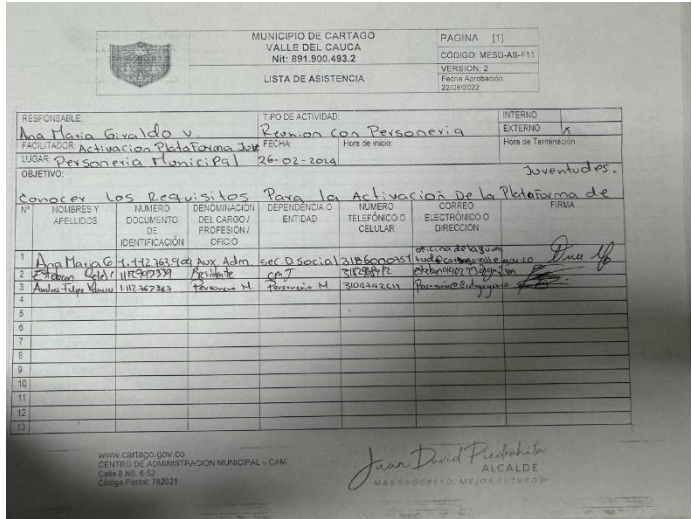 MUNICIPIO DE CARTAGO
VALLE DEL CAUCA
Nit: 891.900.493.2
LISTA DE ASISTENCIA
PAGINA [1]
CÓDIGO: MESG-AS-F11
VERSION: 2
Fecha Aprobación:
22/06/2022
RESPONSABLE:
Ana Maria Giraldo v.
TIPO DE ACTIVIDAD:
Reunion Con Personeria
INTERNO
EXTERNO X
FACILITADOR: Activacion Plataforma Juve
FECHA:
26-02-2024
Hora de inicio:
Hora de Terminación
LUGAR: Personeria Municipal
OBJETIVO:
Juventudes.
Conocer Los Requisitos Para la Activacion De la Plataforma de
Nº NOMBRES Y APELLIDOS NUMERO DOCUMENTO DE IDENTIFICACIÓN DENOMINACIÓN DEL CARGO / PROFESIÓN / OFICIO DEPENDENCIA O ENTIDAD NUMERO TELEFÓNICO O CELULAR CORREO ELECTRÓNICO O DIRECCIÓN FIRMA
1 Ana Maria G Aux. Adm. sec. D. social 3186000357
2 Esteban Presidente CMJ
3 Andres Felipe 1.112.767.363 Personero M. Personeria M.
4
5
6
7
8
9
10
11
12
13
www.cartago.gov.co
CENTRO DE ADMINISTRACION MUNICIPAL – CAM
Calle 8 N0. 6-52
Código Postal: 762021
Juan David Piedrahita
ALCALDE
MÁS PROGRESO, MEJOR FUTURO